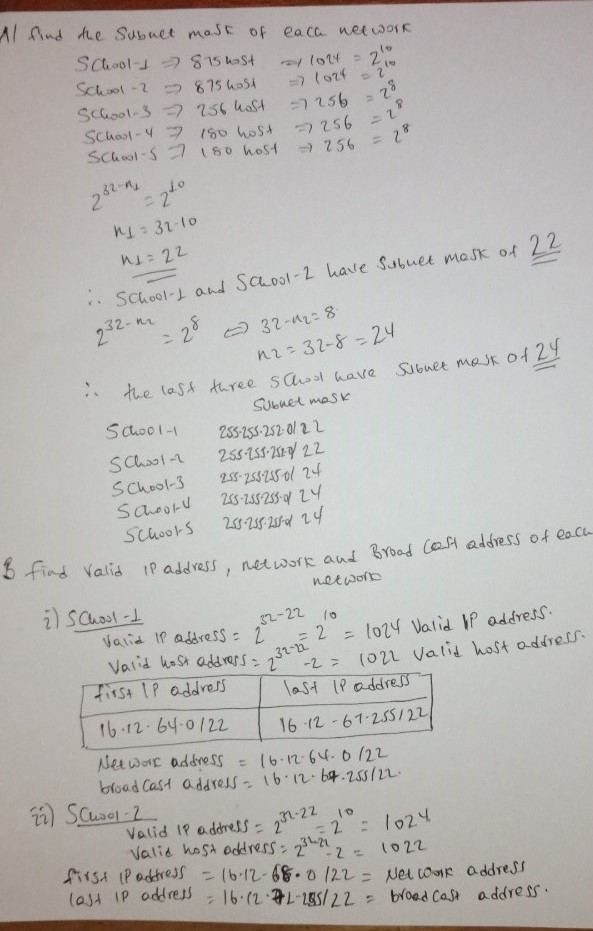 A/ find the Subnet mask of each network
School-1 => 875 host => 1024 = 2^10
School-2 => 875 host => 1024 = 2^10
School-3 => 256 host => 256 = 2^8
School-4 => 180 host => 256 = 2^8
School-5 => 180 host => 256 = 2^8
2^32-n1 = 2^10
n1 = 32-10
n1 = 22
∴ School-1 and School-2 have Subnet mask of 22
2^32-n2 = 2^8 <=> 32-n2 = 8
n2 = 32-8 = 24
∴ the last three school have subnet mask of 24
Subnet mask
School-1 255.255.252.0/22
School-2 255.255.252.0/22
School-3 255.255.255.0/24
School-4 255.255.255.0/24
School-5 255.255.255.0/24
B find valid IP address, network and Broad Cast address of each
network
i) School-1
Valid IP address = 2^32-22 = 2^10 = 1024 Valid IP address.
Valid host address = 2^32-22 -2 = 1022 Valid host address.
first IP address last IP address
16.12.64.0/22 16.12.67.255/22
Network address = 16.12.64.0/22
broad cast address = 16.12.67.255/22.
ii) School-2
Valid IP address = 2^32-22 = 2^10 = 1024
Valid host address = 2^32-22 -2 = 1022
first IP address = 16.12.68.0/22 = Network address
last IP address = 16.12.71.255/22 = broad cast address.